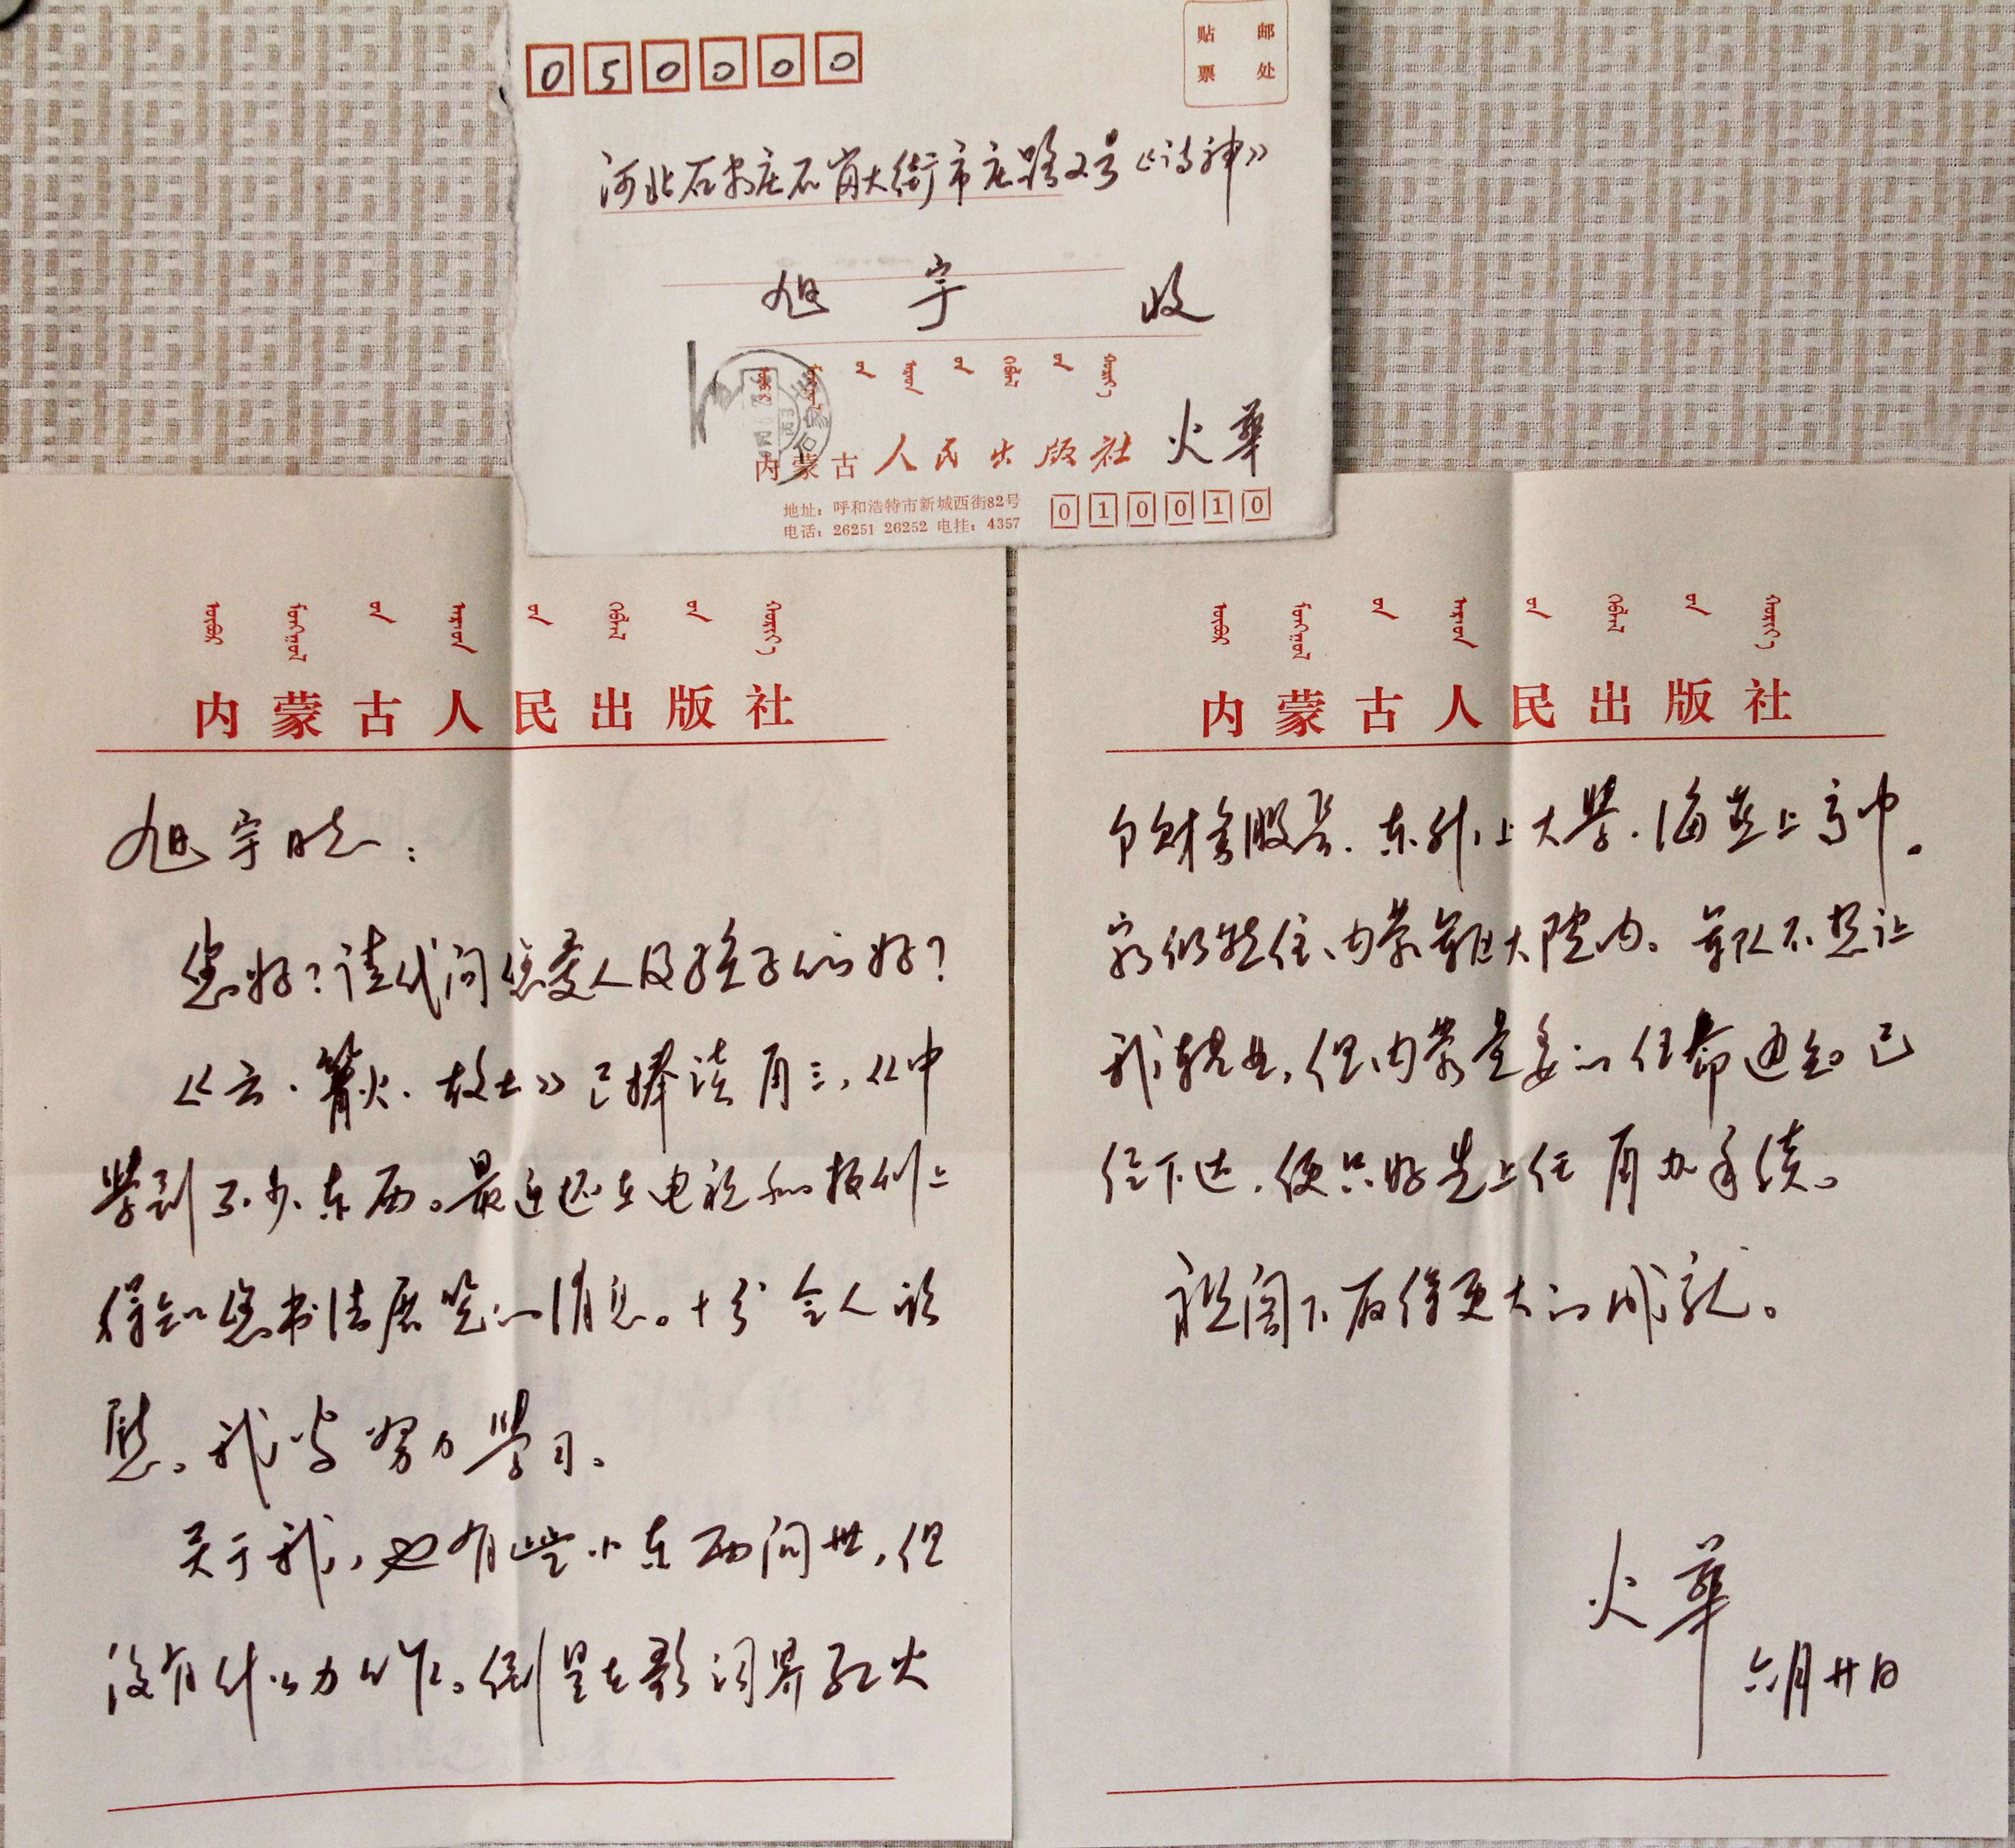 050000
贴 邮
票 处
河北石家庄石岗大街市庄路2号《诗神》
旭宇 收
内蒙古人民出版社 火華
地址：呼和浩特市新城西街82号
电话：26251 26252 电挂：4357
010010
内蒙古人民出版社
旭宇
您好？请代问您爱人及孩子们好？
《云·篝火·故土》已捧读再三，从中
学到不少东西。最近还在电视和报刊上
得知您书法展览的消息。十分令人欣
慰。我当努力学习。
关于我，也有些小东西问世，但
没有什么力作。倒是在歌词界红火
内蒙古人民出版社
东升上大学．海燕上高中。
家仍然住内蒙军区大院内。军队不想让
我转业，但内蒙党委的任命通知已
经下达．便只好先上任再办手续。
祝阁下取得更大的成就。
火華
六月廿日